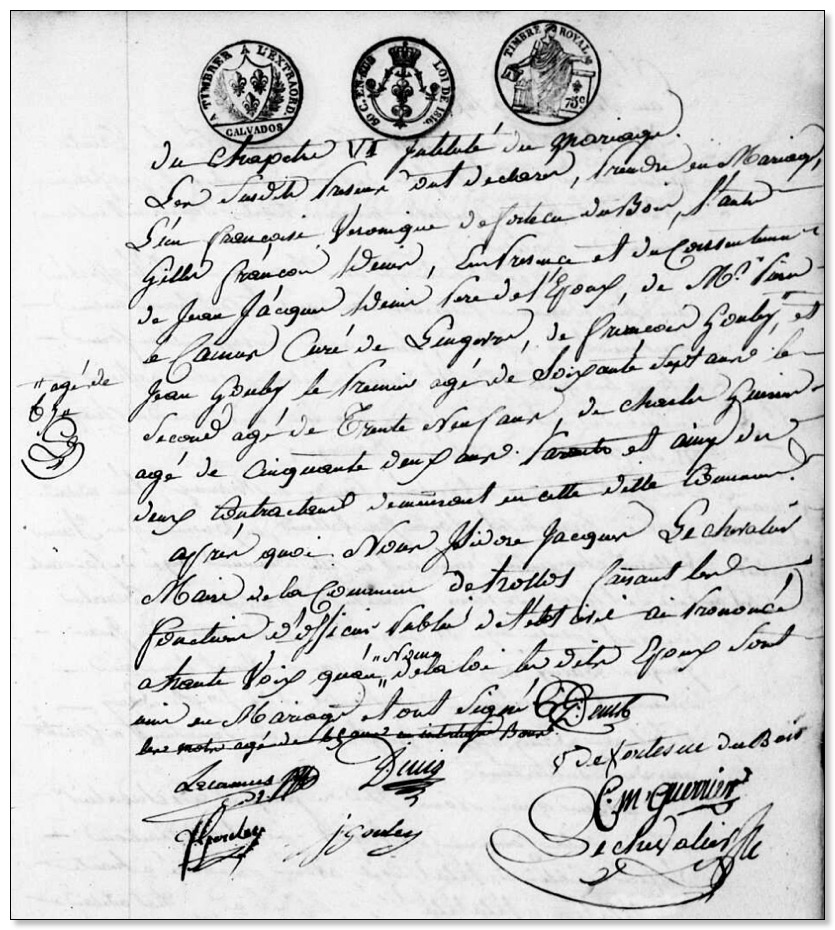 A TIMBRER A L'EXTRAORD.
CALVADOS
50 C. EN SUS
LOI DE 1816.
TIMBRE ROYAL
75 c
du Chapitre VI Intitulé du Mariage.
Les susdits ont declarer, prendre en Mariage,
L'un françoise Véronique de fortecu du Bois, l'autre
Gilles françois Denis, En Presence et du Consentement
de Jean Jacques Denis Pere de l'Epoux, de Mr.
le Camus Curé de Lingevre, de françois Gouley, et
Jean Gouley le Premier agé de Soixante Sept ans le
Second agé de Trente Neuf ans, de Charles Guerrier
agé de Cinquante deux ans. Parents et amis des
deux Contractans demeurant en cette ditte Commune.
après quoi Nous Isidore Jacques Lechevalier
Maire de la Commune de faisant les
fonctions d'officier Public de l'état Civil ai Prononcé
a haute Voix qu'au de la loi les dits Epoux sont
"Nom
unis en Mariage et ont Signé Denis
" agé de
agé de
Lecamus Denis
f de fortescu du Bois
C. M. Guerrier
f Gouley j Gouley
Lechevalier